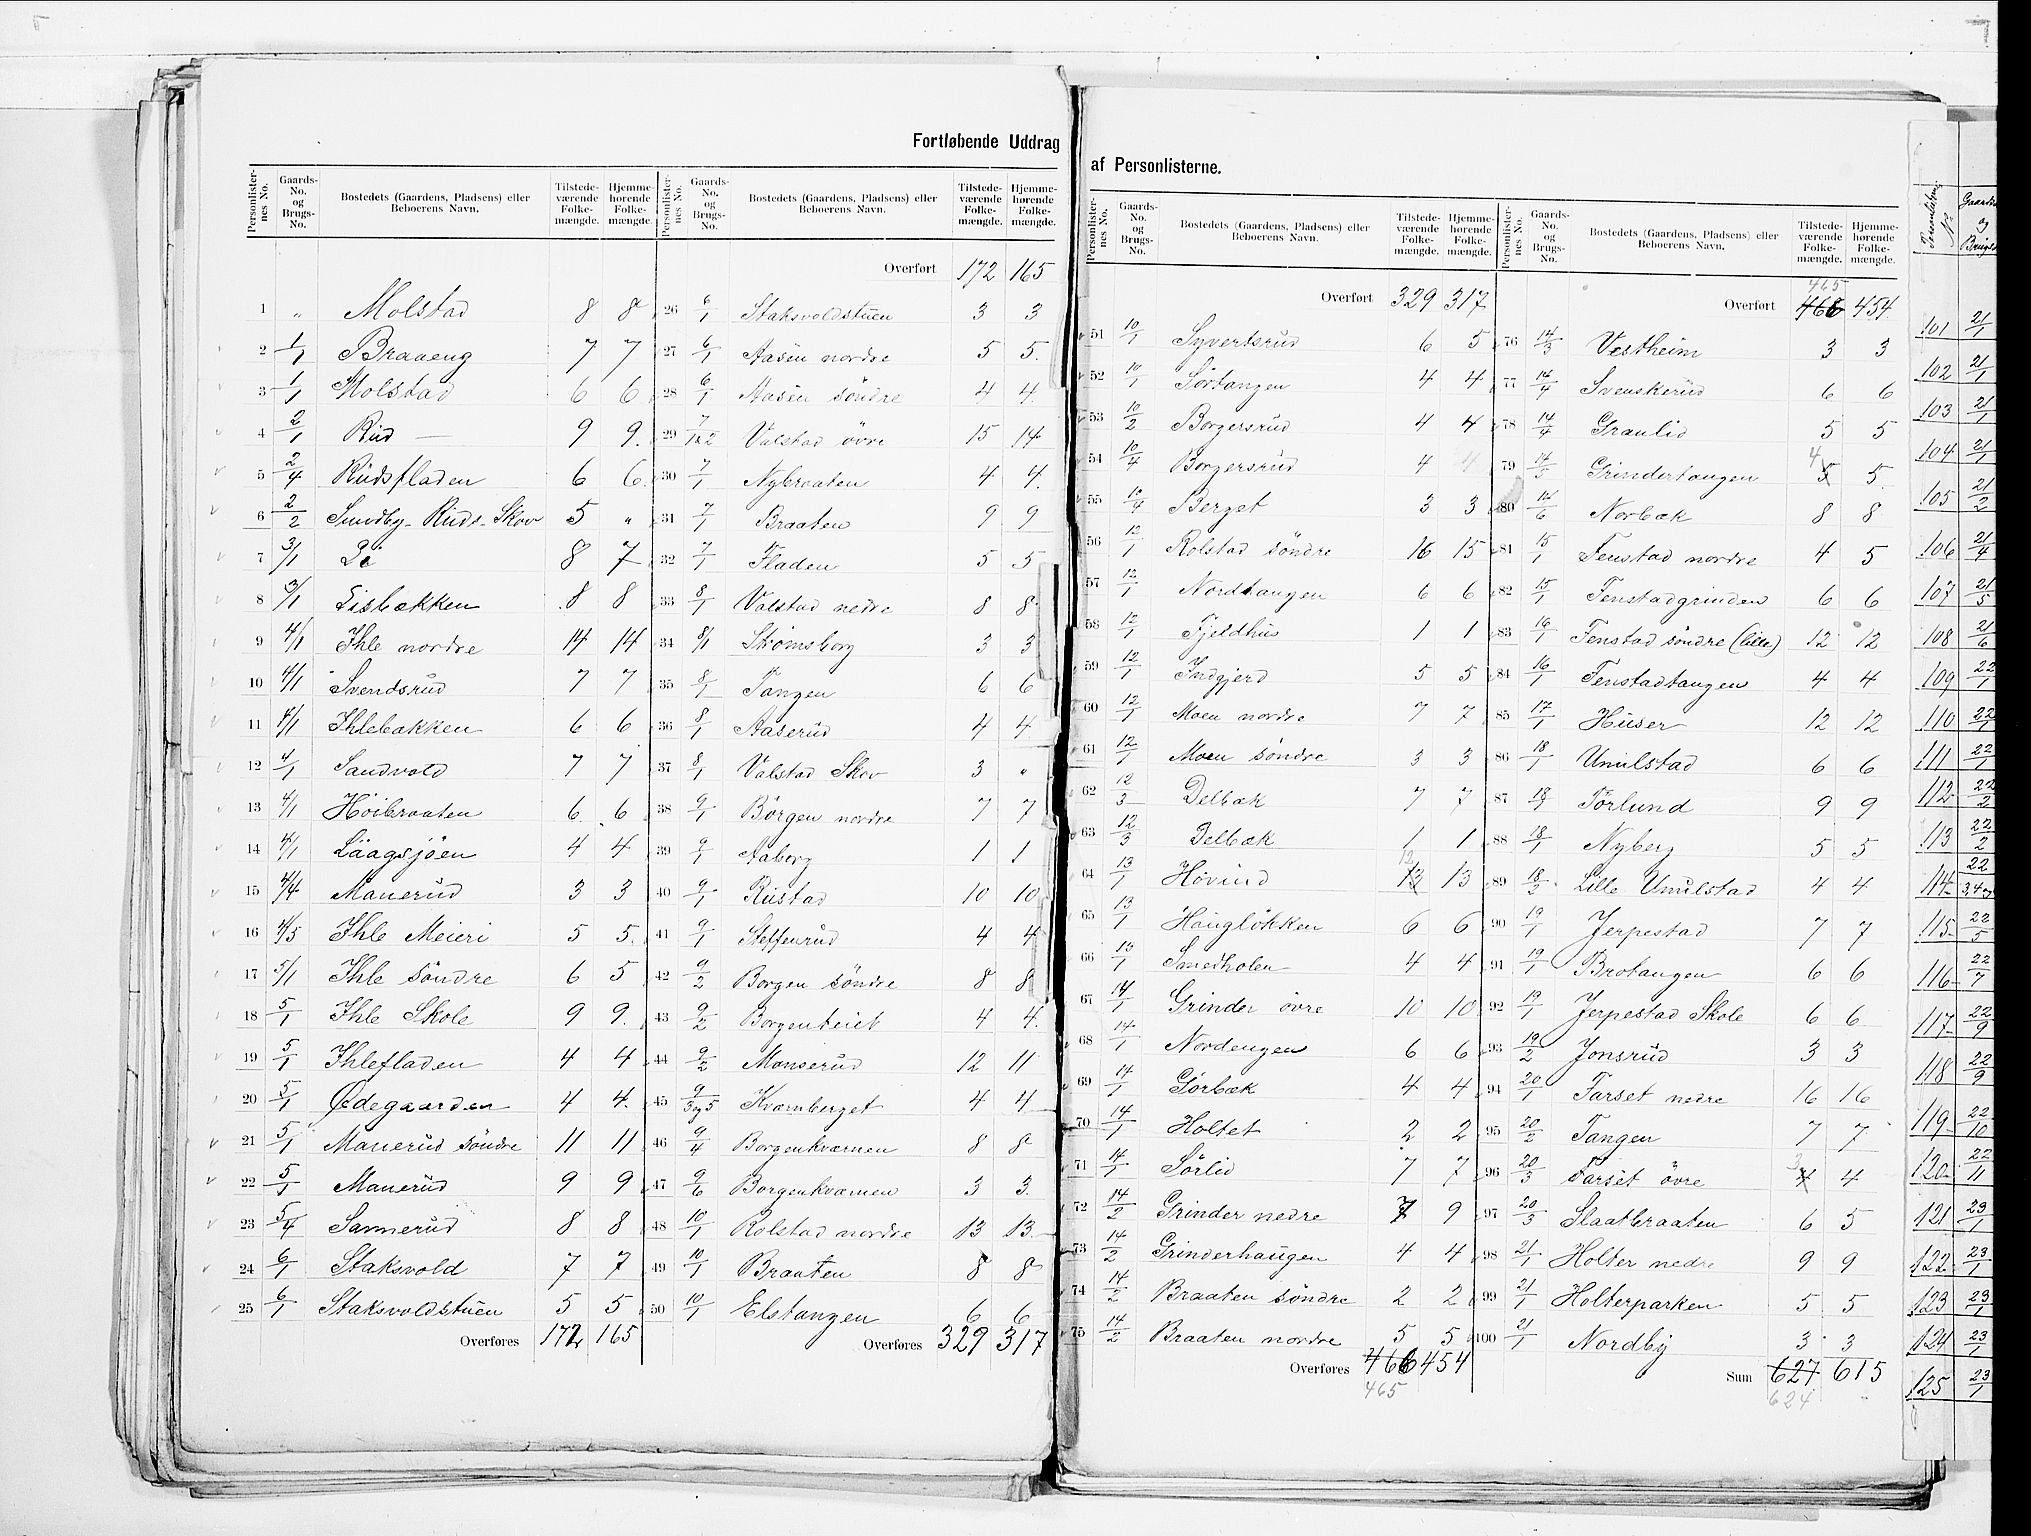 Fortløbende Uddrag
af Personlisterne.
Personlister-nes No. | Gaards-No. og Brugs-No. | Bostedets (Gaardens, Pladsens) eller Beboerens Navn. | Tilstede-værende Folke-mængde. | Hjemme-hørende Folke-mængde.
1 „ Molstad 8 8
2 1/1 Braaeng 7 7
3 1/1 Molstad 6 6
4 2/1 Rud — 9 9.
5 2/4 Rudsfladen 6 6.
6 2/2 Sundby-Ruds-Skov 5 „
7 3/1 Li 8 7
8 3/1 Lisbækken 8 8
9 4/1 Ihle nordre 14 14
10 4/1 Svendsrud 7 7
11 4/1 Ihlebakken 6 6
12 4/1 Sandvold 7 7
13 4/1 Höibraaten 6 6
14 4/1 Låagsjöen 4 4
15 4/4 Manerud 3 3
16 4/5 Ihle Meieri 5 5.
17 5/1 Ihle söndre 6 5
18 5/1 Ihle Skole 9 9.
19 5/1 Ihlefladen 4 4
20 5/1 Ødegaarden 4 4.
21 5/1 Manerud söndre 11 11
22 5/1 Manerud 9 9
23 5/4 Sannerud 8 8
24 6/1 Staksvold 7 7
25 6/1 Staksvoldstuen 5 5
Overføres 172 165
Personlister-nes No. | Gaards-No. og Brugs-No. | Bostedets (Gaardens, Pladsens) eller Beboerens Navn. | Tilstede-værende Folke-mængde. | Hjemme-hørende Folke-mængde.
Overført 172 165
26 6/1 Staksvoldstuen 3 3
27 6/1 Aasen nordre 5 5.
28 6/1 Aasen söndre 4 4.
29 7/1&2 Valstad övre 15 14
30 7/1 Nybraaten 4 4.
31 7/1 Braaten 9 9
32 7/1 Fladen 5 5
33 8/1 Valstad nedre 8 8
34 8/1 Strömsborg 3 3
35 8/1 Tangen 6 6
36 8/1 Aaserud 4 4
37 8/1 Valstad Skov 3 „
38 9/1 Börgen nordre 7 7
39 9/1 Aaborg 1 1
40 9/1 Rustad 10 10
41 9/1 Steffenrud 4 4
42 9/2 Borgen söndre 8 8
43 9/2 Borgenteiet 4 4.
44 9/2 Monserud 12 11
45 9/3og5 Kvernberget 4 4
46 9/4 Borgenkvernen 8 8
47 9/6 Borgenkvernen 3 3.
48 10/1 Rolstad nordre 13 13.
49 10/1 Braaten 8 8
50 10/1 Elstangen 6 6
Overføres 329 317
Personlister-nes No. | Gaards-No. og Brugs-No. | Bostedets (Gaardens, Pladsens) eller Beboerens Navn. | Tilstede-værende Folke-mængde. | Hjemme-hørende Folke-mængde.
Overført 329 317
51 10/1 Syvertsrud 6 5
52 10/1 Sörtangen 4 4
53 10/2 Borgersrud 4 4
54 10/4 Borgersrud 4 4
55 10/4 Berget 3 3
56 12/1 Rolstad söndre 16 15
57 12/1 Nordtangen 6 6
58 12/1 Fjeldhus 1 1
59 12/1 Indgjerd 5 5
60 12/1 Moen nordre 7 7
61 12/1 Moen söndre 3 3
62 12/3 Delbæk 7 7
63 12/3 Delbæk 1 1
64 13/1 Hovind 13 12 13
65 13/1 Hauglökken 6 6
66 13/1 Smedholen 4 4
67 14/1 Grinder övre 10 10
68 14/1 Nordengen 6 6
69 14/1 Görbæk 4 4
70 14/1 Holtet 2 2
71 14/1 Sörlid 7 7
72 14/2 Grinder nedre 7 9
73 14/2 Grinderhaugen 4 4
74 14/2 Braaten söndre 2 2
75 14/2 Braaten nordre 5 5
Overføres 466 454
465
Personlister-nes No. | Gaards-No. og Brugs-No. | Bostedets (Gaardens, Pladsens) eller Beboerens Navn. | Tilstede-værende Folke-mængde. | Hjemme-hørende Folke-mængde.
465
Overført 466 454
76 14/3 Vestheim 3 3
77 14/4 Svenskerud 6 6
78 14/4 Granlid 5 5
79 14/5 Grindertangen 5 4 5.
80 14/6 Norbæk 8 8
81 15/1 Fenstad nordre 4 5
82 15/1 Fenstadgrinden 6 6
83 16/1 Fenstad söndre (lille) 12 12
84 16/1 Fenstadtangen 4 4
85 17/1 Huser 12 12
86 18/1 Unulstad 6 6
87 18/1 Törlund 9 9
88 18/1 Nyberg 5 5
89 18/3 Lille Unulstad 4 4
90 19/1 Jerpestad 7 7
91 19/1 Brotangen 6 6
92 19/1 Jerpestad Skole 6 6
93 19/2 Jonsrud 3 3
94 20/1 Farset nedre 16 16
95 20/2 Tangen 7 7
96 20/3 Farset övre 4 3 4
97 20/3 Slaatbraaten 6 5
98 21/1 Holter nedre 9 9
99 21/1 Holterparken 5 5
100 21/1 Nordby 3 3
Sum 627 615
624
101 21/1
102 21/1
103 21/1
104 21/1
105 21/2
106 21/4
107 21/5
108 21/6
109 22/1
110 22/1
111 22/1
112 22/2
113 22/2
114 22/3,4og
115 22/5
116 22/7
117 22/9
118 22/9
119 22/10
120 22/11
121 23/1
122 23/1
123 23/1
124 23/1
125 23/1